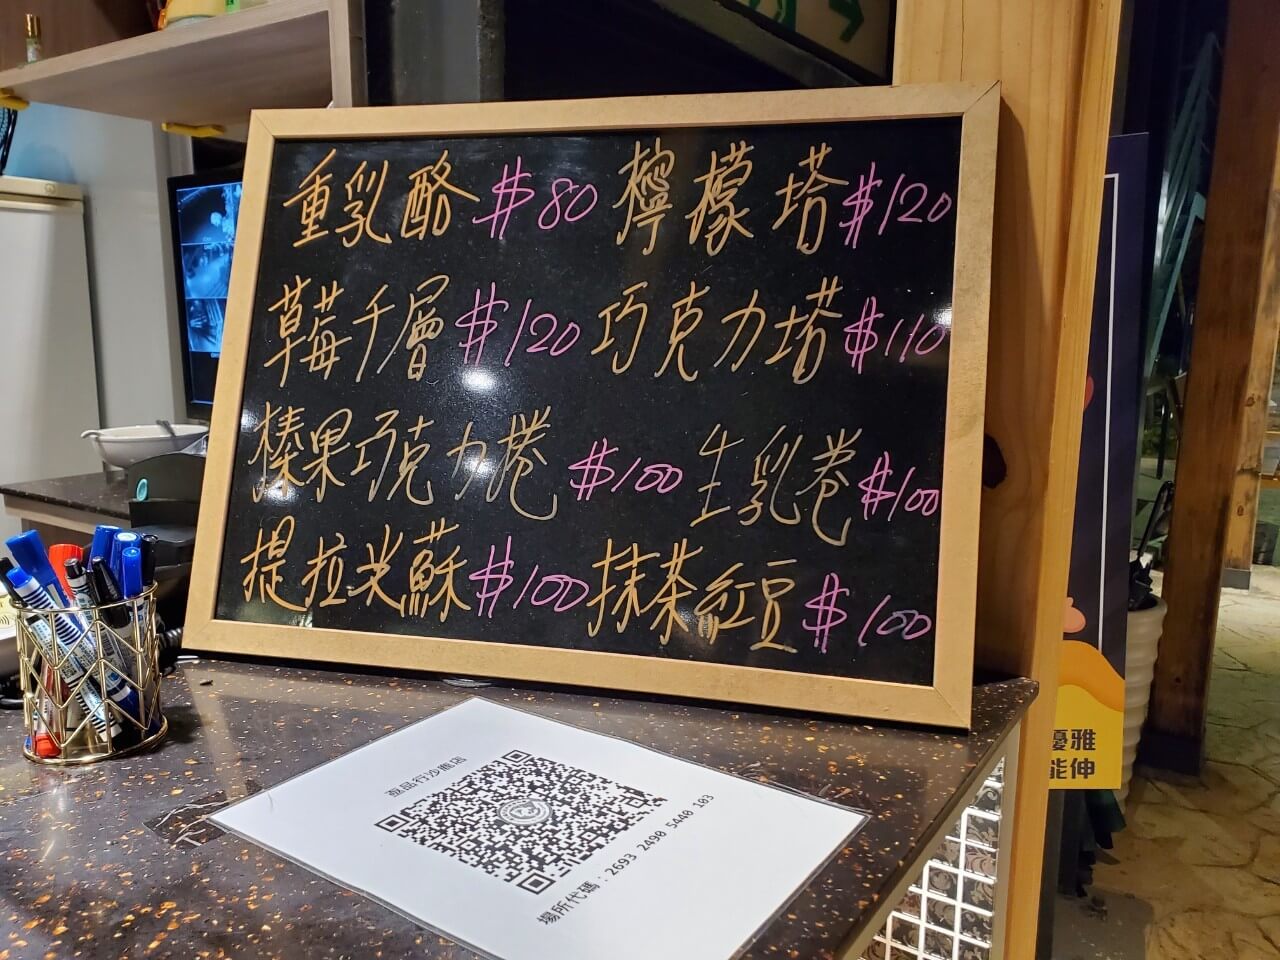 重乳酪 $80 檸檬塔 $120
草莓千層 $120 巧克力塔 $110
榛果巧克力捲 $100 生乳卷 $100
提拉米蘇 $100 抹茶紅豆 $100
壺品行沙鹿店
場所代碼：2693 2490 5440 103
優雅
能伸